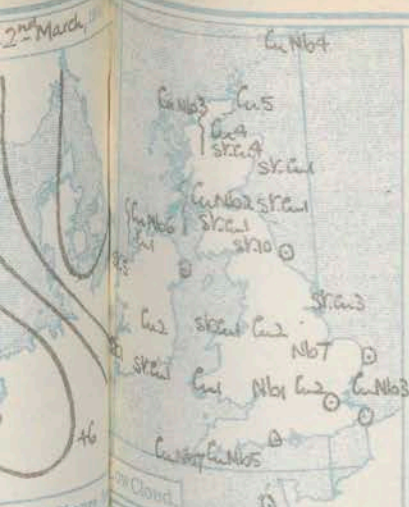 2nd March,
CuNb4
CuNb3 Cu5
Cu4
St.Cu4
St.Cu1
CuNb2 St.Cu1
CuNb6 St.Cu1
Cu1 St.10
Cu2 St.Cu1 Cu2 St.Cu3
Nb7
St.Cu1 Cu1 Nb1 Cu2 CuNb3
+6
CuNb7 CuNb5
ow Cloud.